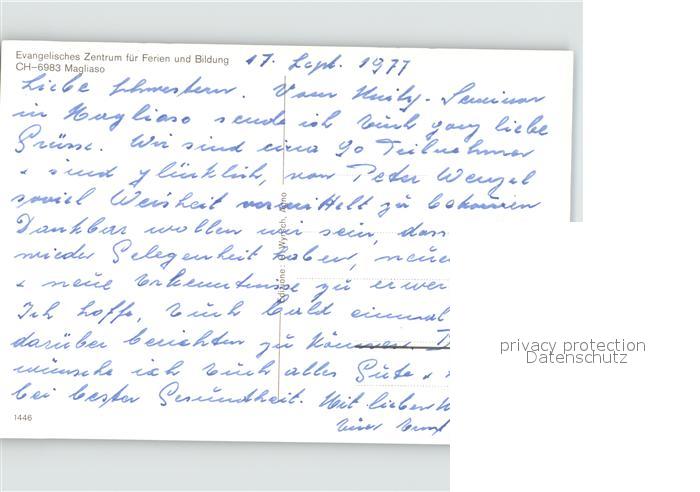 Evangelisches Zentrum für Ferien und Bildung
CH-6983 Magliaso
17. Sept. 1977
Liebe Schwestern. Vom Seminar
in Magliaso sende ich Euch ganz liebe
Grüsse. Wir sind circa 90 Teilnehmer
+ sind glücklich, von Peter Wenzel
soviel Weisheit vermittelt zu bekommen
Dankbar wollen wir sein, dass
wieder Gelegenheit haben, neue
+ neue Erkenntnisse zu erwer
Ich hoffe, Euch bald einmal
darüber berichten zu können. D
wünsche ich Euch alles Gute +
bei bester Gesundheit. Mit lieben
Euer
Edizione: Wyrsch,
1446
privacy protection
Datenschutz